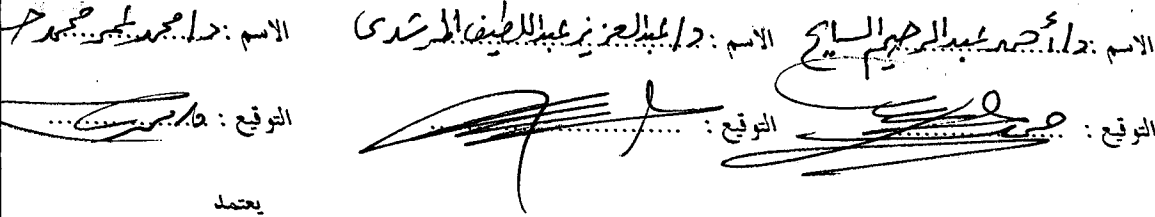 الاسم : د/ أحمد عبد الرحيم السايح الاسم : د/ عبد العزيز عبد اللطيف المرشدى الاسم : د/ محمد محمد
التوقيع : التوقيع : التوقيع :
يعتمد